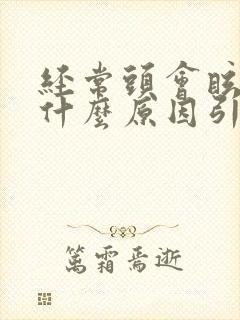 經常頭會眩
什麼原因引
篤霜焉逝